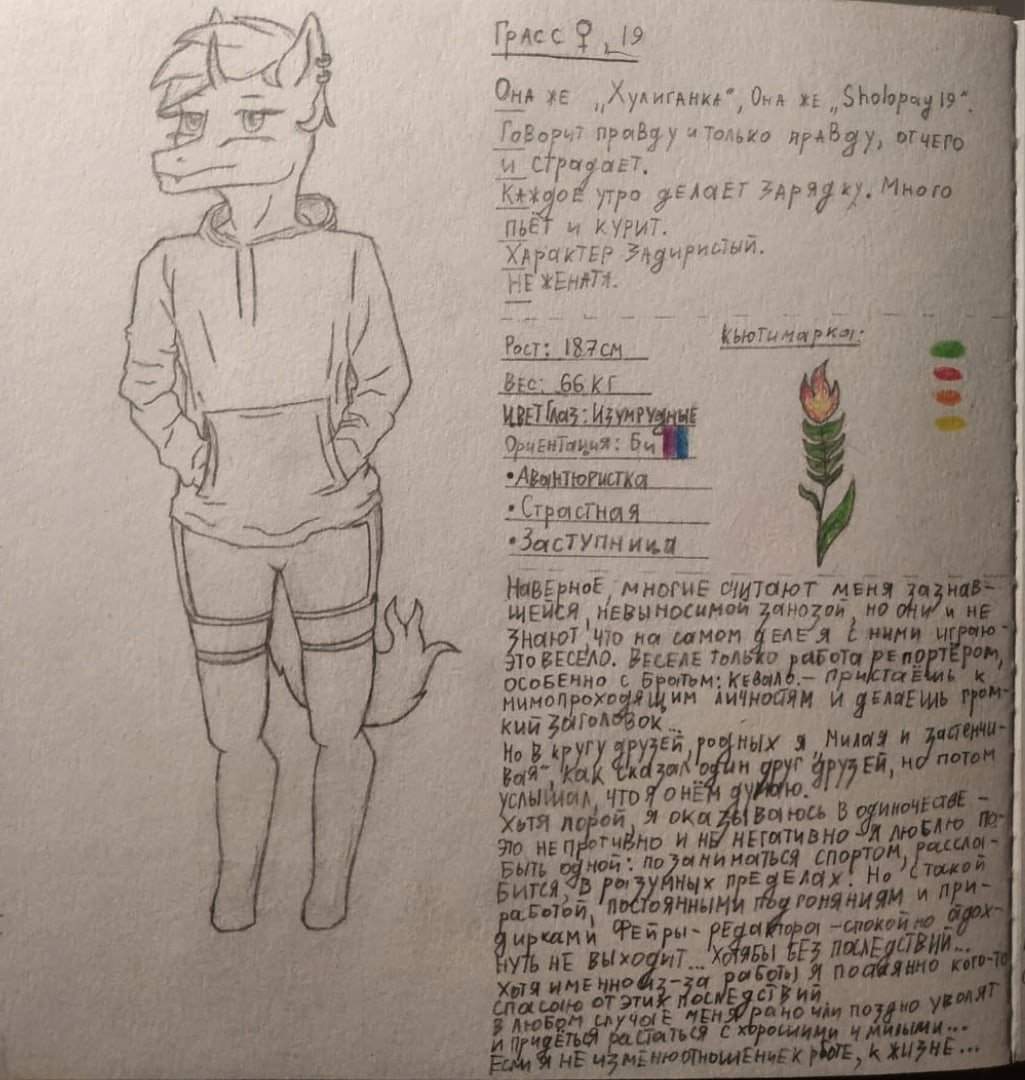 Грасс ♀, 19
Она же „Хулиганка", Она же „Sholopay19".
Говорит правду и только правду, отчего
и страдает.
Каждое утро делает зарядку. Много
пьёт и курит.
Характер задиристый.
Не женатя.
Рост: 187см
Вес: 66кг
Цвет глаз: Изумрудные
Ориентация: Би
•Авантюристка
•Страстная
•Заступница
Кьютимарка:
Наверное, многие считают меня зазнав-
шейся, невыносимой занозой, но они и не
знают, что на самом деле я с ними играю-
это весело. Веселе только работа репортёром,
особенно с братом: Кеваль.- пристаёшь к
мимопроходящим личностям и делаешь гром-
кий заголовок...
Но в кругу друзей, родных я „милая и застенчи-
вая", как сказал один друг друзей, но потом
услышал, что я о нём думаю.
Хотя порой, я оказываюсь в одиночестве -
это не противно и не негативно - я люблю по-
быть одной: позаниматься спортом, рассла-
бится, в разумных пределах. Но с такой
работой, постоянными подгоняниям и при-
дирками Фейры-редактора -спокойно вдох-
нуть не выходит... хотябы без последствий...
Хотя именно из-за работы я постаянно кого-то
спасаю от этих последствий
в любом случае меня рано или поздно уволят
и придёться растаться с хорошими и милыми...
Если я не изменю отношение к работе, к жизне...